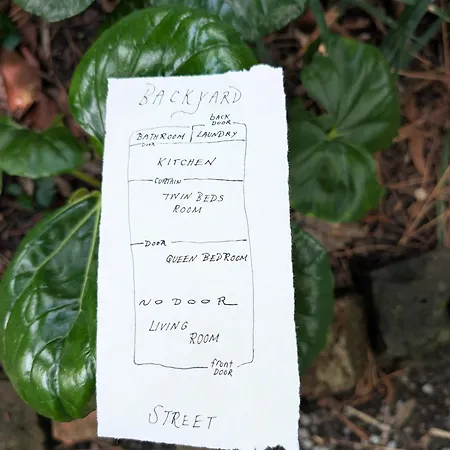 BACKYARD
back
DOOR
BATHROOM LAUNDRY
DOOR
KITCHEN
CURTAIN
TWIN BEDS
ROOM
DOOR
QUEEN BEDROOM
NO DOOR
LIVING
ROOM
front
DOOR
STREET